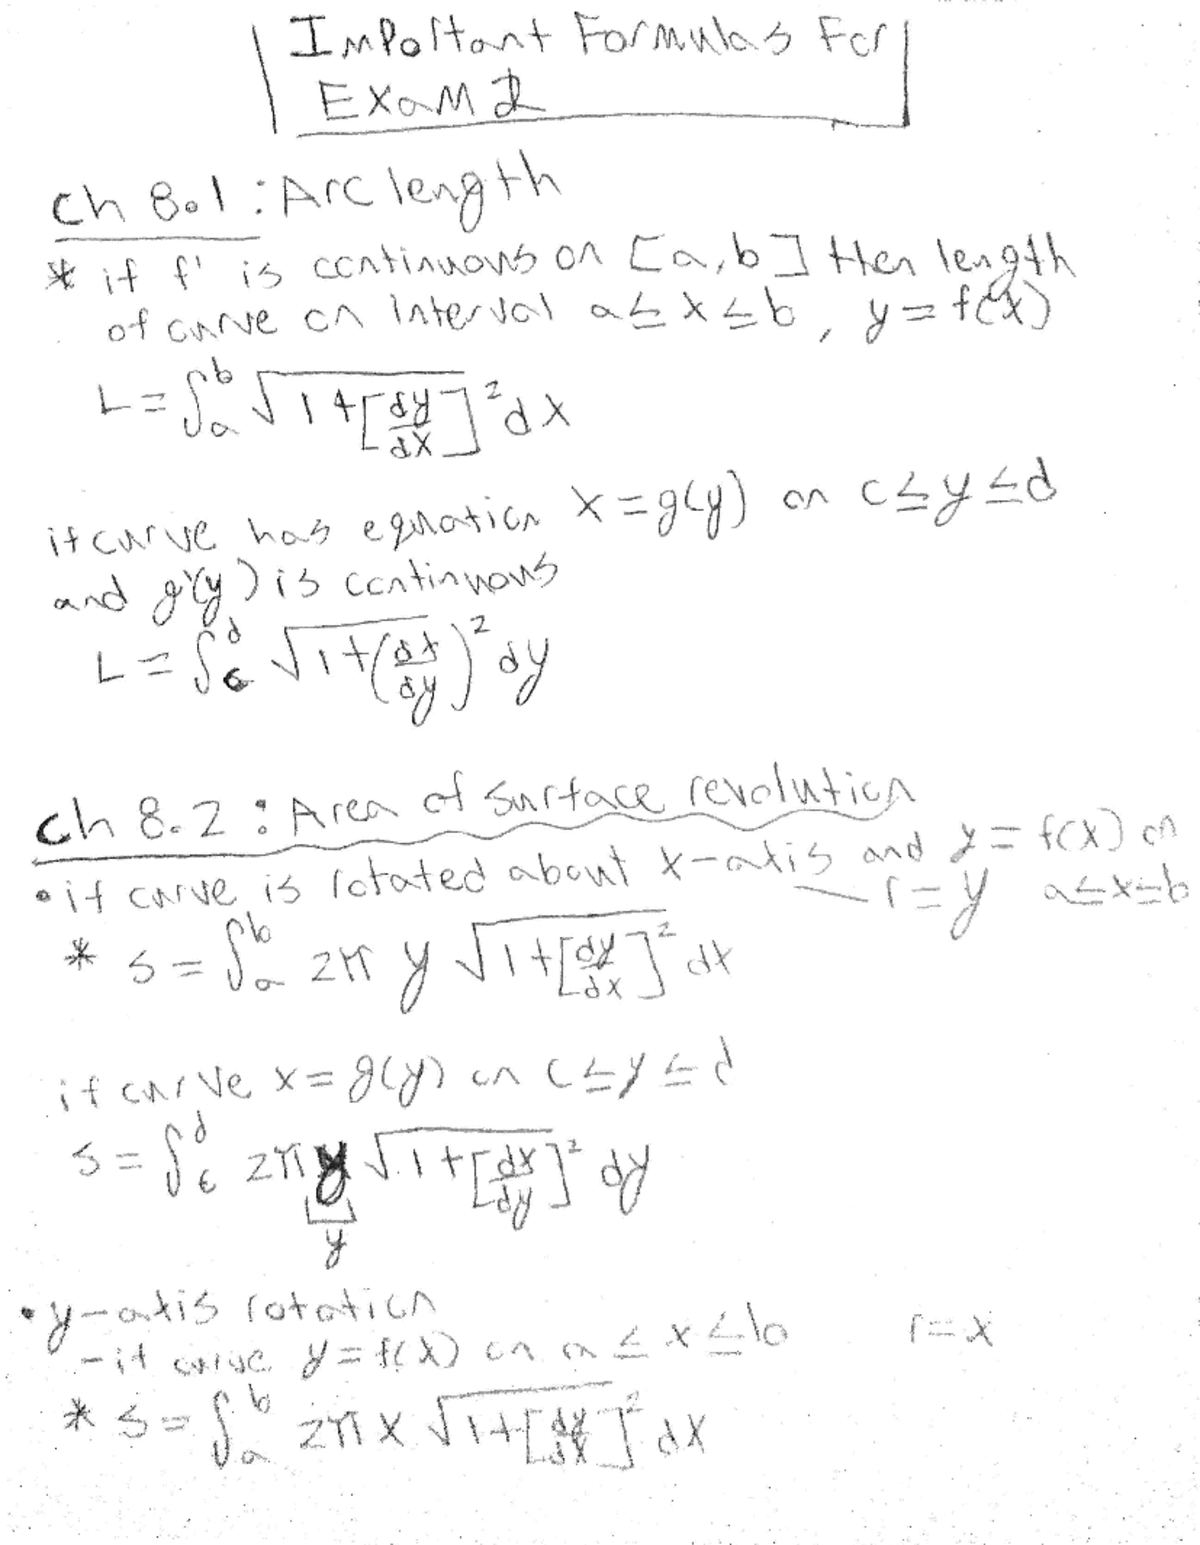 Important Formulas For
Exam 2
Ch 8.1 : Arc length
* if f' is continuous on [a,b] then length
of curve on interval a ≤ x ≤ b, y = f(x)
L = ∫_a^b √(1+[dy/dx]^2) dx
if curve has equation x = g(y) on c ≤ y ≤ d
and g'(y) is continuous
L = ∫_c^d √(1+(dx/dy)^2) dy
Ch 8.2 : Area of surface revolution
• if curve is rotated about x-axis and y = f(x) on
— r = y a ≤ x ≤ b
* S = ∫_a^b 2π y √(1+[dy/dx]^2) dx
if curve x = g(y) on c ≤ y ≤ d
S = ∫_c^d 2π y √(1+[dx/dy]^2) dy
y
• y-axis rotation
- if curve y = f(x) on a ≤ x ≤ b r = x
* S = ∫_a^b 2π x √(1+[dy/dx]^2) dx